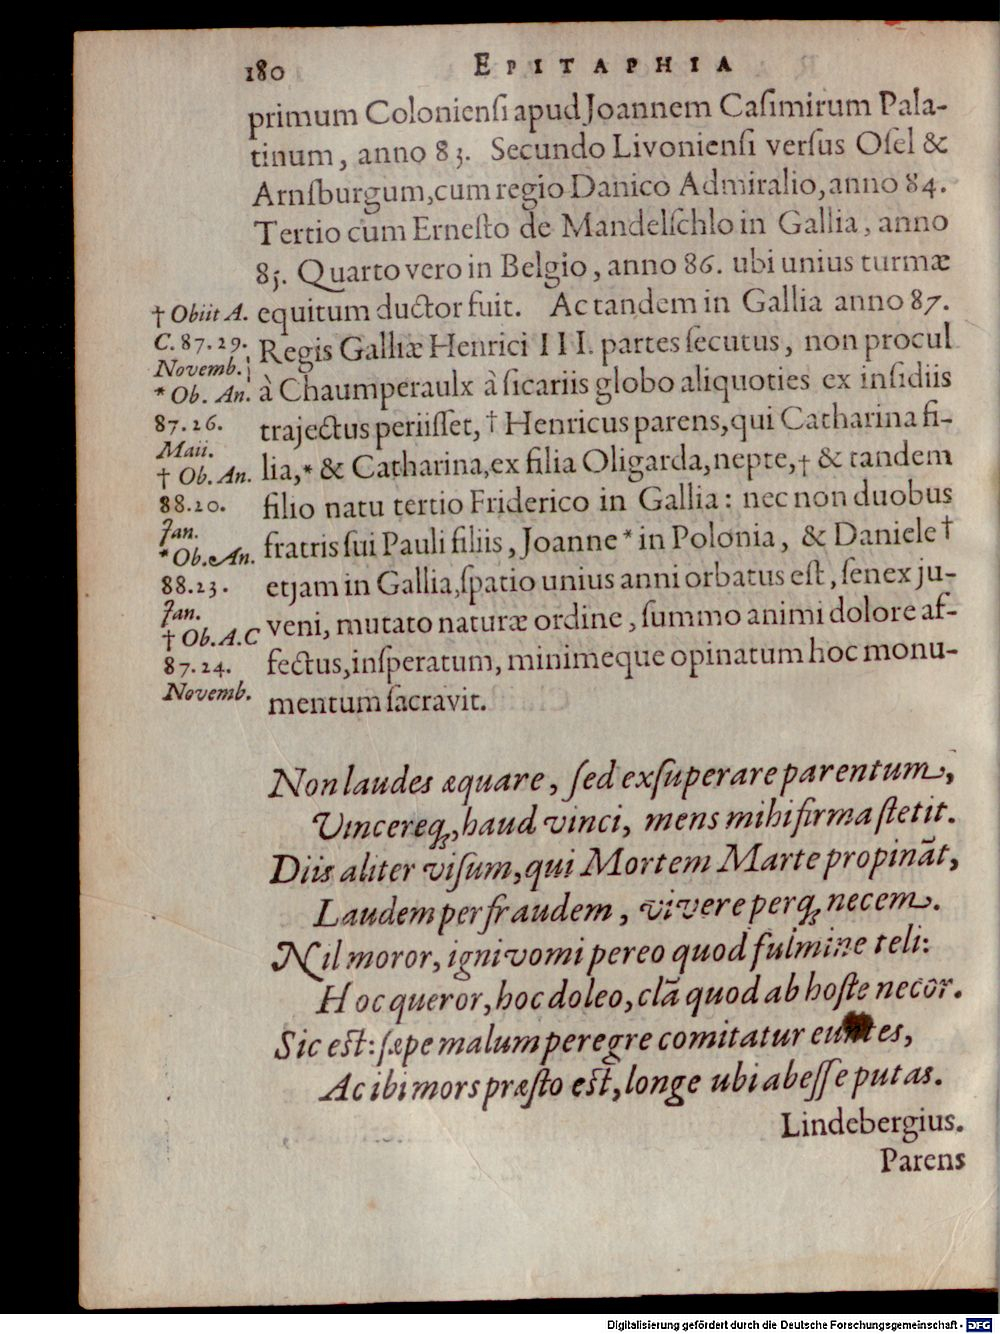 180 EPITAPHIA
primum Colonienſi apud Joannem Caſimirum Pala-
tinum, anno 83. Secundo Livonienſi verſus Oſel &
Arnſburgum, cum regio Danico Admiralio, anno 84.
Tertio cum Erneſto de Mandelſchlo in Gallia, anno
85. Quarto vero in Belgio, anno 86. ubi unius turmæ
equitum ductor fuit. Ac tandem in Gallia anno 87.
Regis Galliæ Henrici III. partes ſecutus, non procul
à Chaumperaulx à ſicariis globo aliquoties ex inſidiis
trajectus periiſſet, † Henricus parens, qui Catharina fi-
lia, * & Catharina, ex filia Oligarda, nepte, † & tandem
filio natu tertio Friderico in Gallia: nec non duobus
fratris ſui Pauli filiis, Joanne * in Polonia, & Daniele †
etjam in Gallia, ſpatio unius anni orbatus eſt, ſenex ju-
veni, mutato naturæ ordine, ſummo animi dolore af-
fectus, inſperatum, minimeque opinatum hoc monu-
mentum ſacravit.
† Obiit A.
C. 87. 29.
Novemb.
* Ob. An.
87. 26.
Maii.
† Ob. An.
88. 20.
Jan.
* Ob. An.
88. 23.
Jan.
† Ob. A. C
87. 24.
Novemb.
Non laudes æquare, ſed exſuperare parentum,
Vincereq́;, haud vinci, mens mihi firma ſtetit.
Diis aliter viſum, qui Mortem Marte propinãt,
Laudem per fraudem, vivere perq́; necem.
Nil moror, ignivomi pereo quod fulmine teli:
Hoc queror, hoc doleo, clã quod ab hoſte necor.
Sic eſt: ſæpe malum peregre comitatur euntes,
Ac ibi mors præſto eſt, longe ubi abeſſe putas.
Lindebergius.
Parens
Digitalisierung gefördert durch die Deutsche Forschungsgemeinschaft - DFG